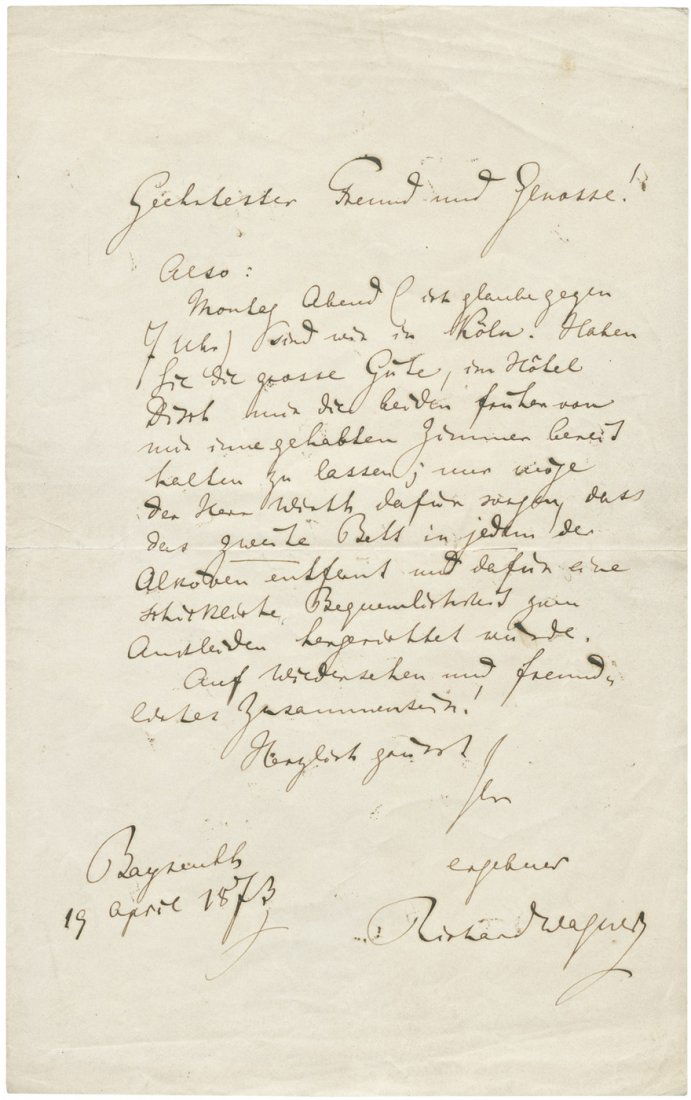 Geehrtester Freund und Genosse!
Also:
Montag Abend (ich glaube gegen
7 Uhr) sind wir in Köln. Haben
Sie die grosse Güte, im Hôtel
Disch mir die beiden früher von
mir inne gehabten Zimmer bereit
halten zu lassen; nur möge
der Herr Wirth dafür sorgen, dass
das zweite Bett in jedem der
Alkoven entfernt und dafür eine
schickliche Bequemlichkeit zum
Ankleiden hergerichtet würde.
Auf Wiedersehen und freund-
liches Zusammensein!
Herzlich grüsst
Ihr
ergebener
Richard Wagner
Bayreuth
19 April 1873